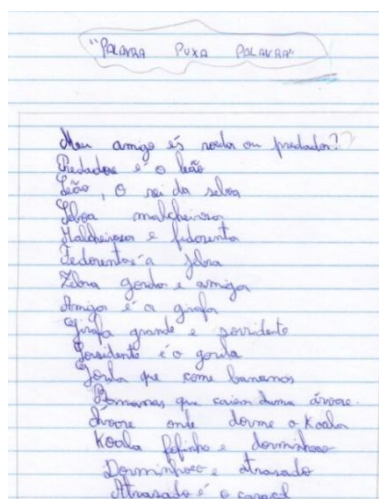 "PALAVRA PUXA PALAVRA"
Meu amigo és roedor ou predador?
Predador é o leão
Leão, O rei da selva
Selva malcheirosa
Malcheirosa e fedorenta
Fedorenta é a zebra
Zebra gorda e amiga
Amiga é a girafa
Girafa grande e sorridente
Sorridente é o gorila
Gorila que come bananas
Bananas que caiem duma árvore.
Árvore onde dorme o Koala
Koala fofinho e dorminhoco
Dorminhoco e atrasado
Atrasado é o caracol